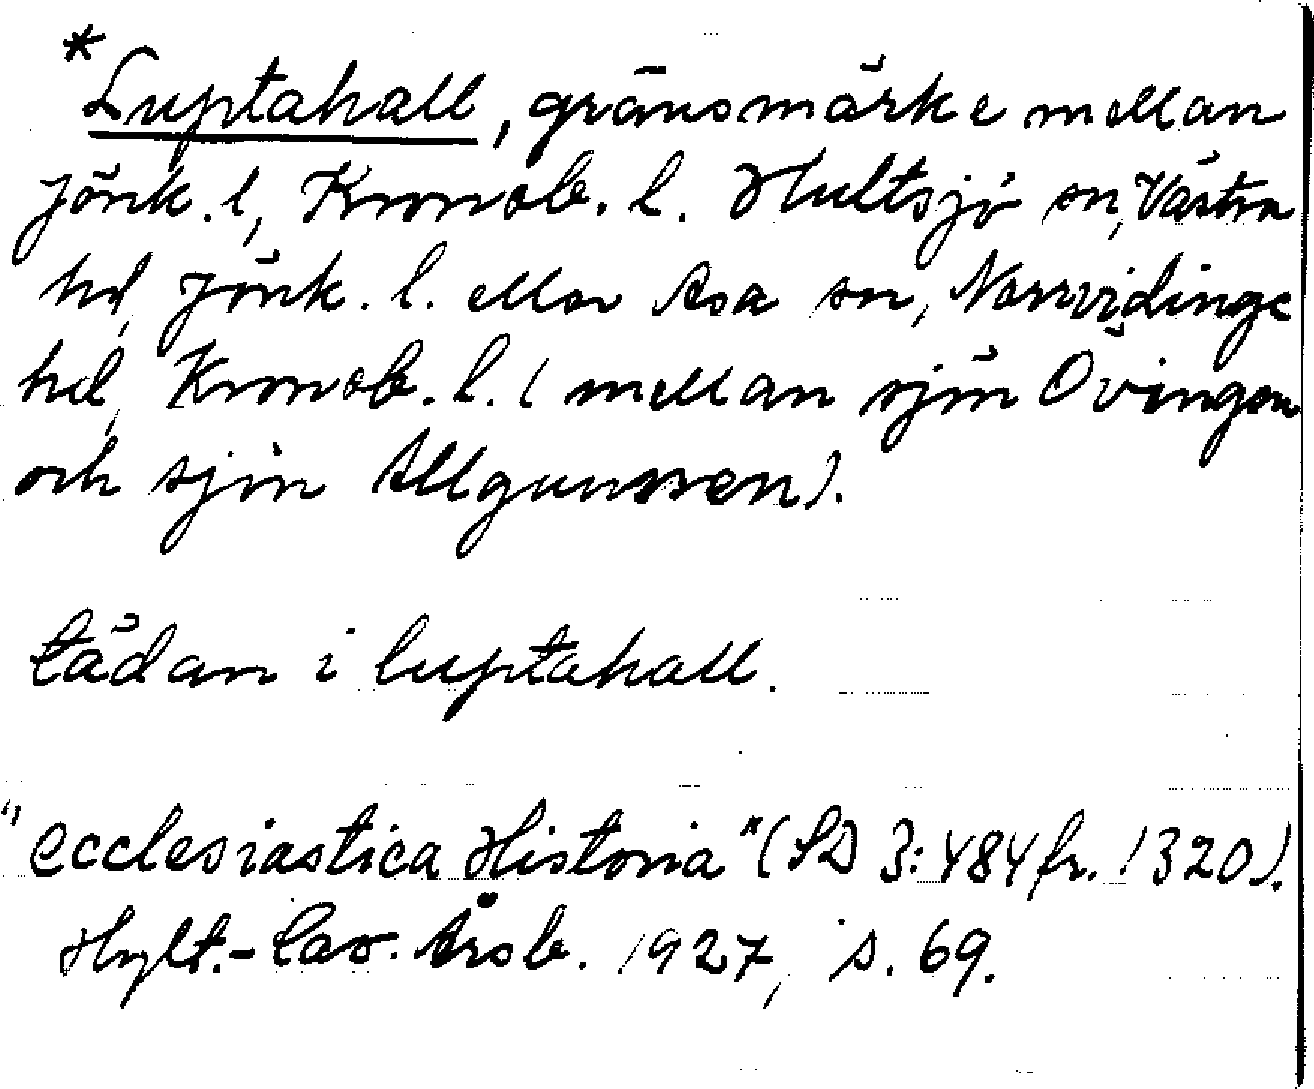 *Luptahall, gränsmärke mellan
Jönk. l, Kronob. l. Hultsjö sn, Västra
hd, Jönk. l. eller Asa sn, Norrvidinge
hd, Kronob. l. (mellan sjön Övingen
och sjön Allgunnen).
tådan i luptahall.
"Ecclesiastica Historia" (SD 3:484 fr. 1320).
Hylt.-Cav. Årsb. 1927, s. 69.